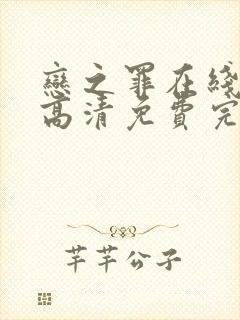 戀之罪在綫
高清免費完
芊芊公子